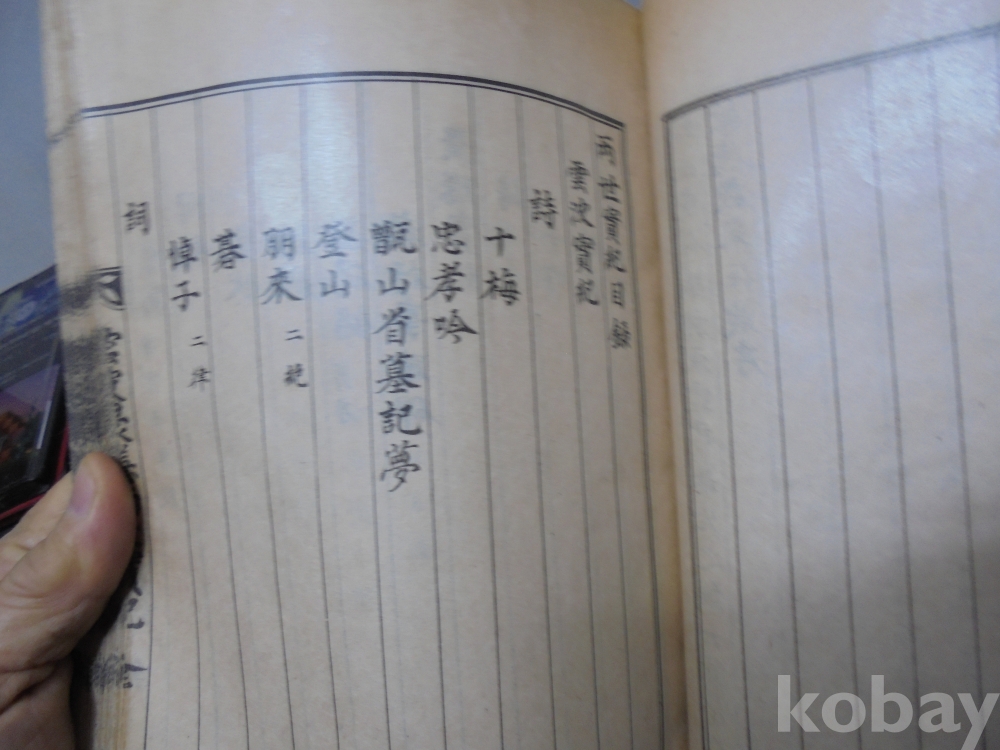 兩世實紀目錄
雲沙實紀
詩
十梅
忠孝吟
甑山省墓記夢
登山
朋來 二絶
碁
悼子 二律
詞
kobay